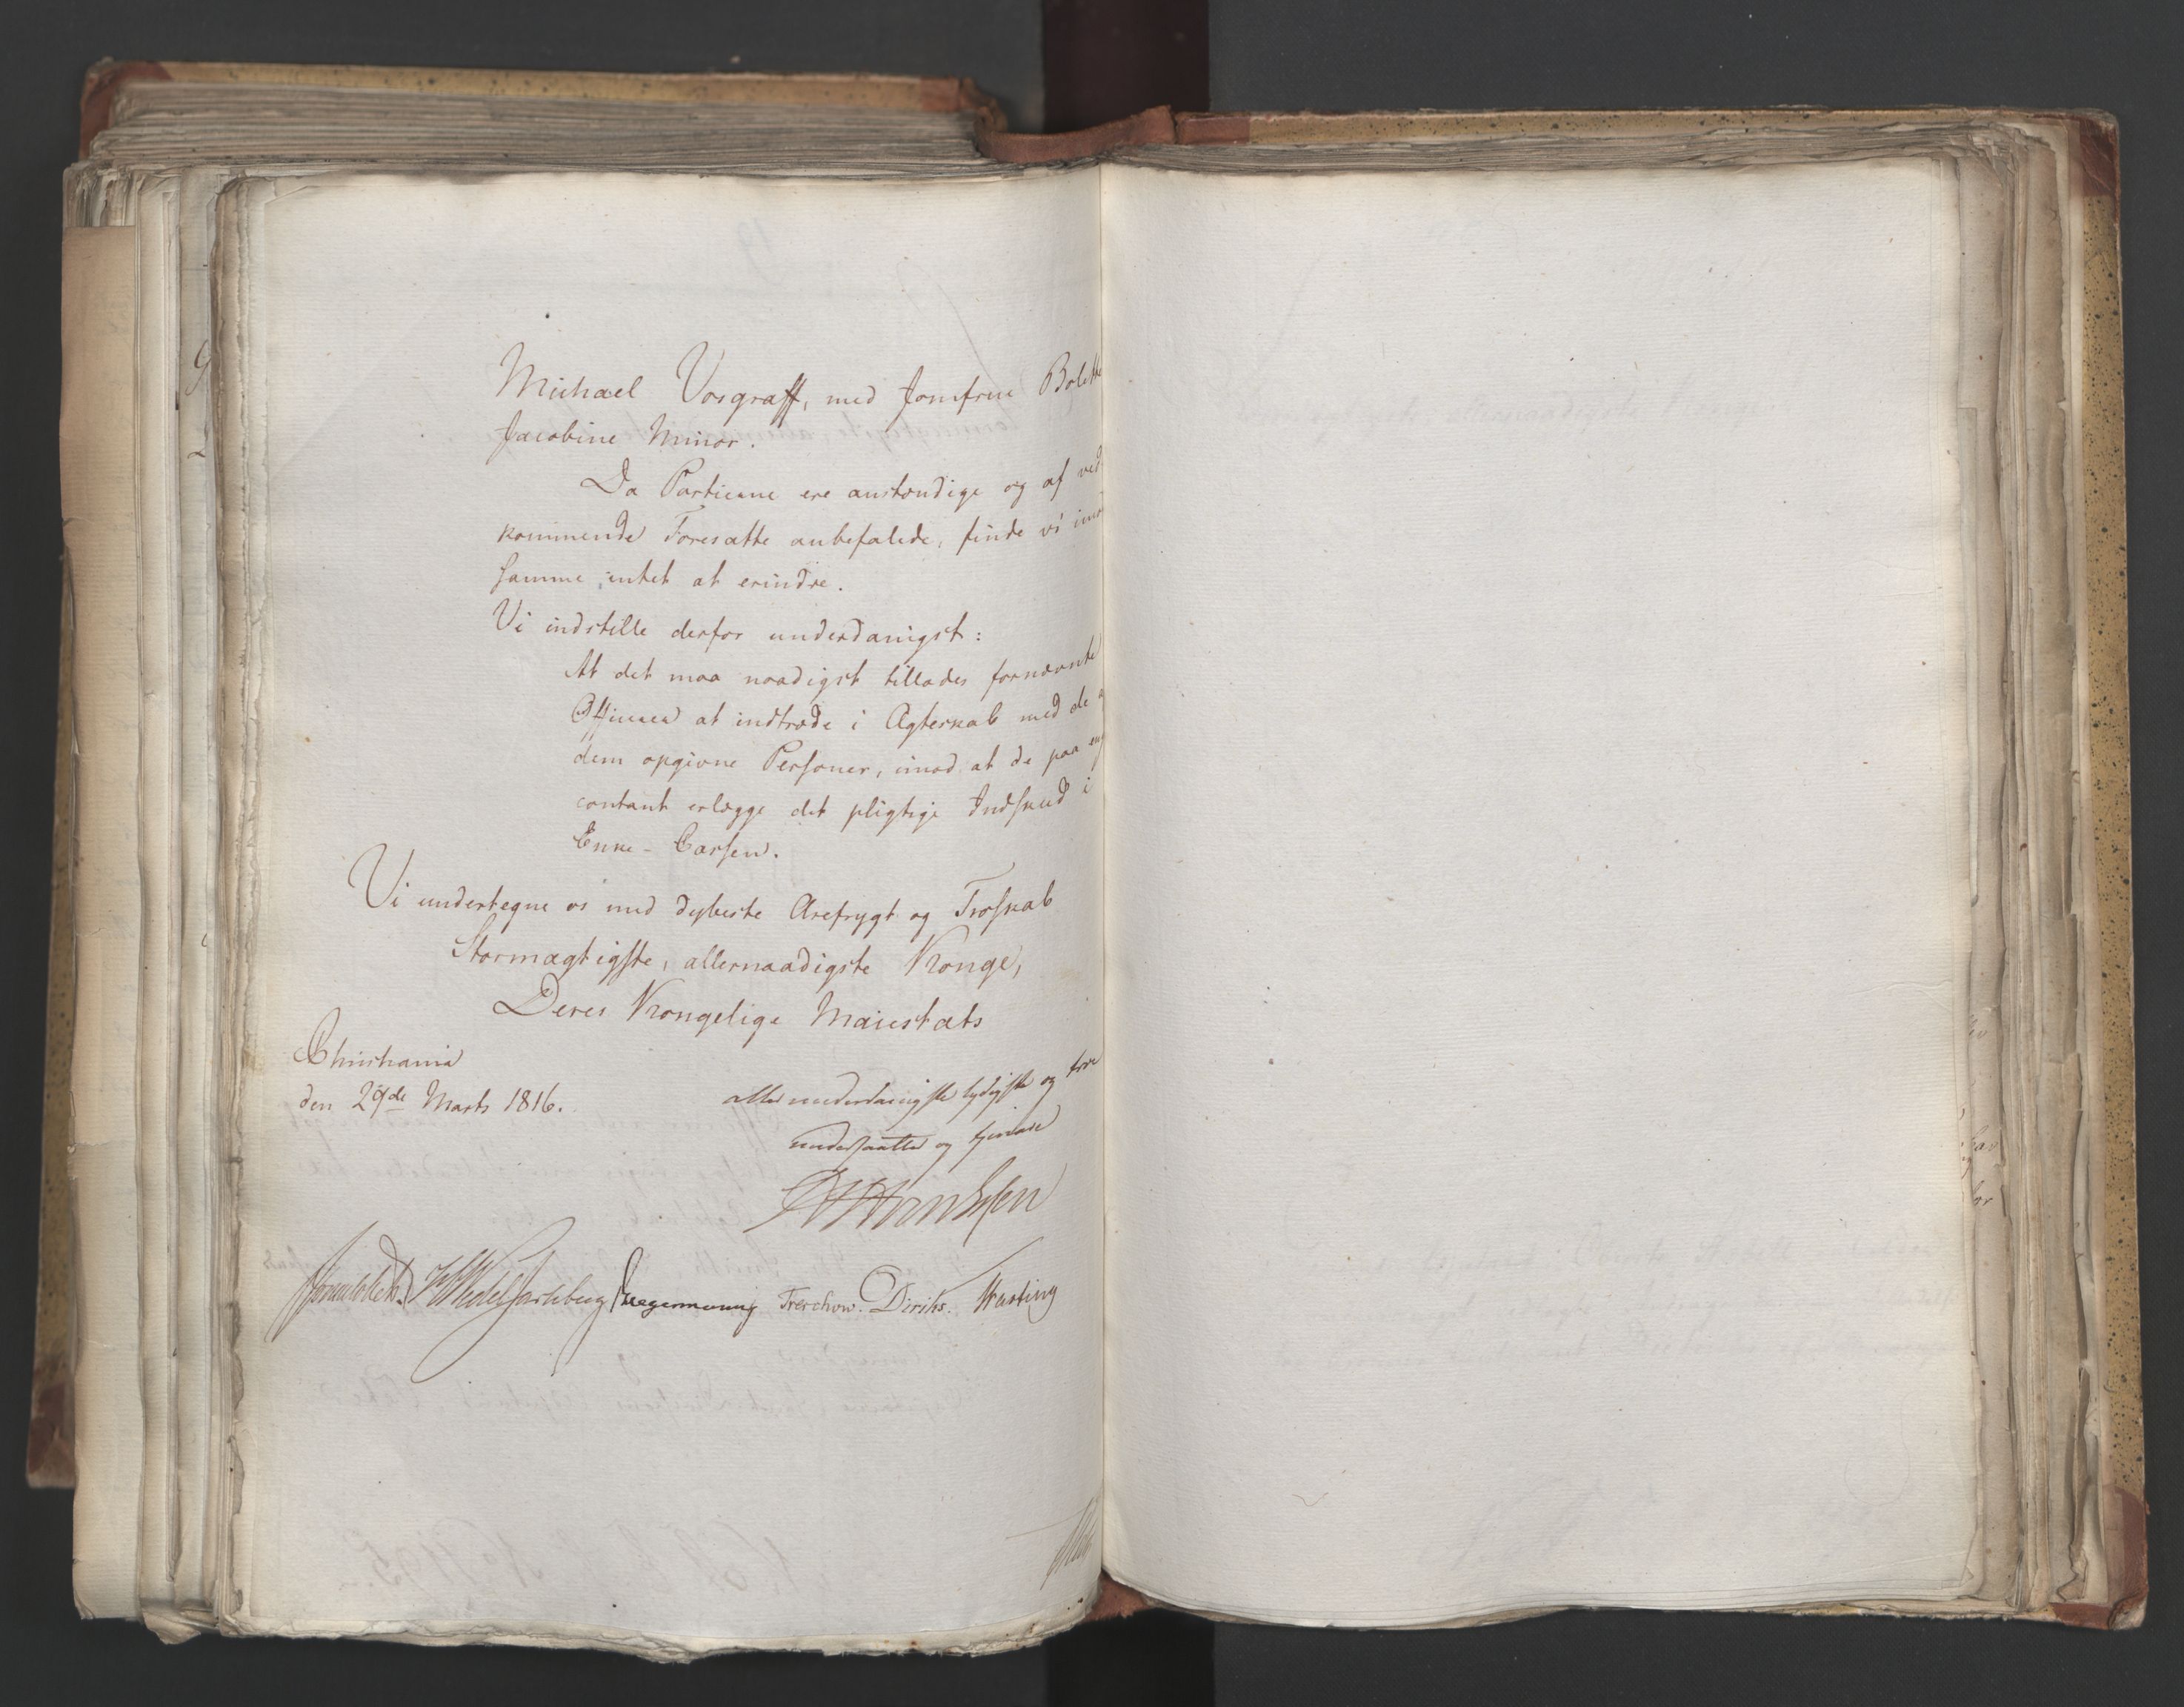 Michael Vosgraff, med Jomfrue Bolette
Jacobine Minor.
Da Partierne ere anstændige og af ved-
kommende Foresatte anbefalede, finde vi imod
samme intet at erindre.
Vi indstille derfor underdanigst:
At det maa naadigst tillades fornævnte
Officerer at indtræde i Ægteskab med de af
dem opgivne Personer, imod at de paa en
contant erlægge det pligtige Indskud i
Enke-Cassen.
Vi undertegne os med dybeste Ærefrygt og Troskab
Stormægtigste, allernaadigste Konge,
Deres Kongelige Maiestæts
Christiania
den 29de Marts 1816.
allerunderdanigste lydigste og troe
undersaatter og tjenere
Sommerfeldt. Wedel Jarlsberg Hegermann Treschow. Diriks. Krefting